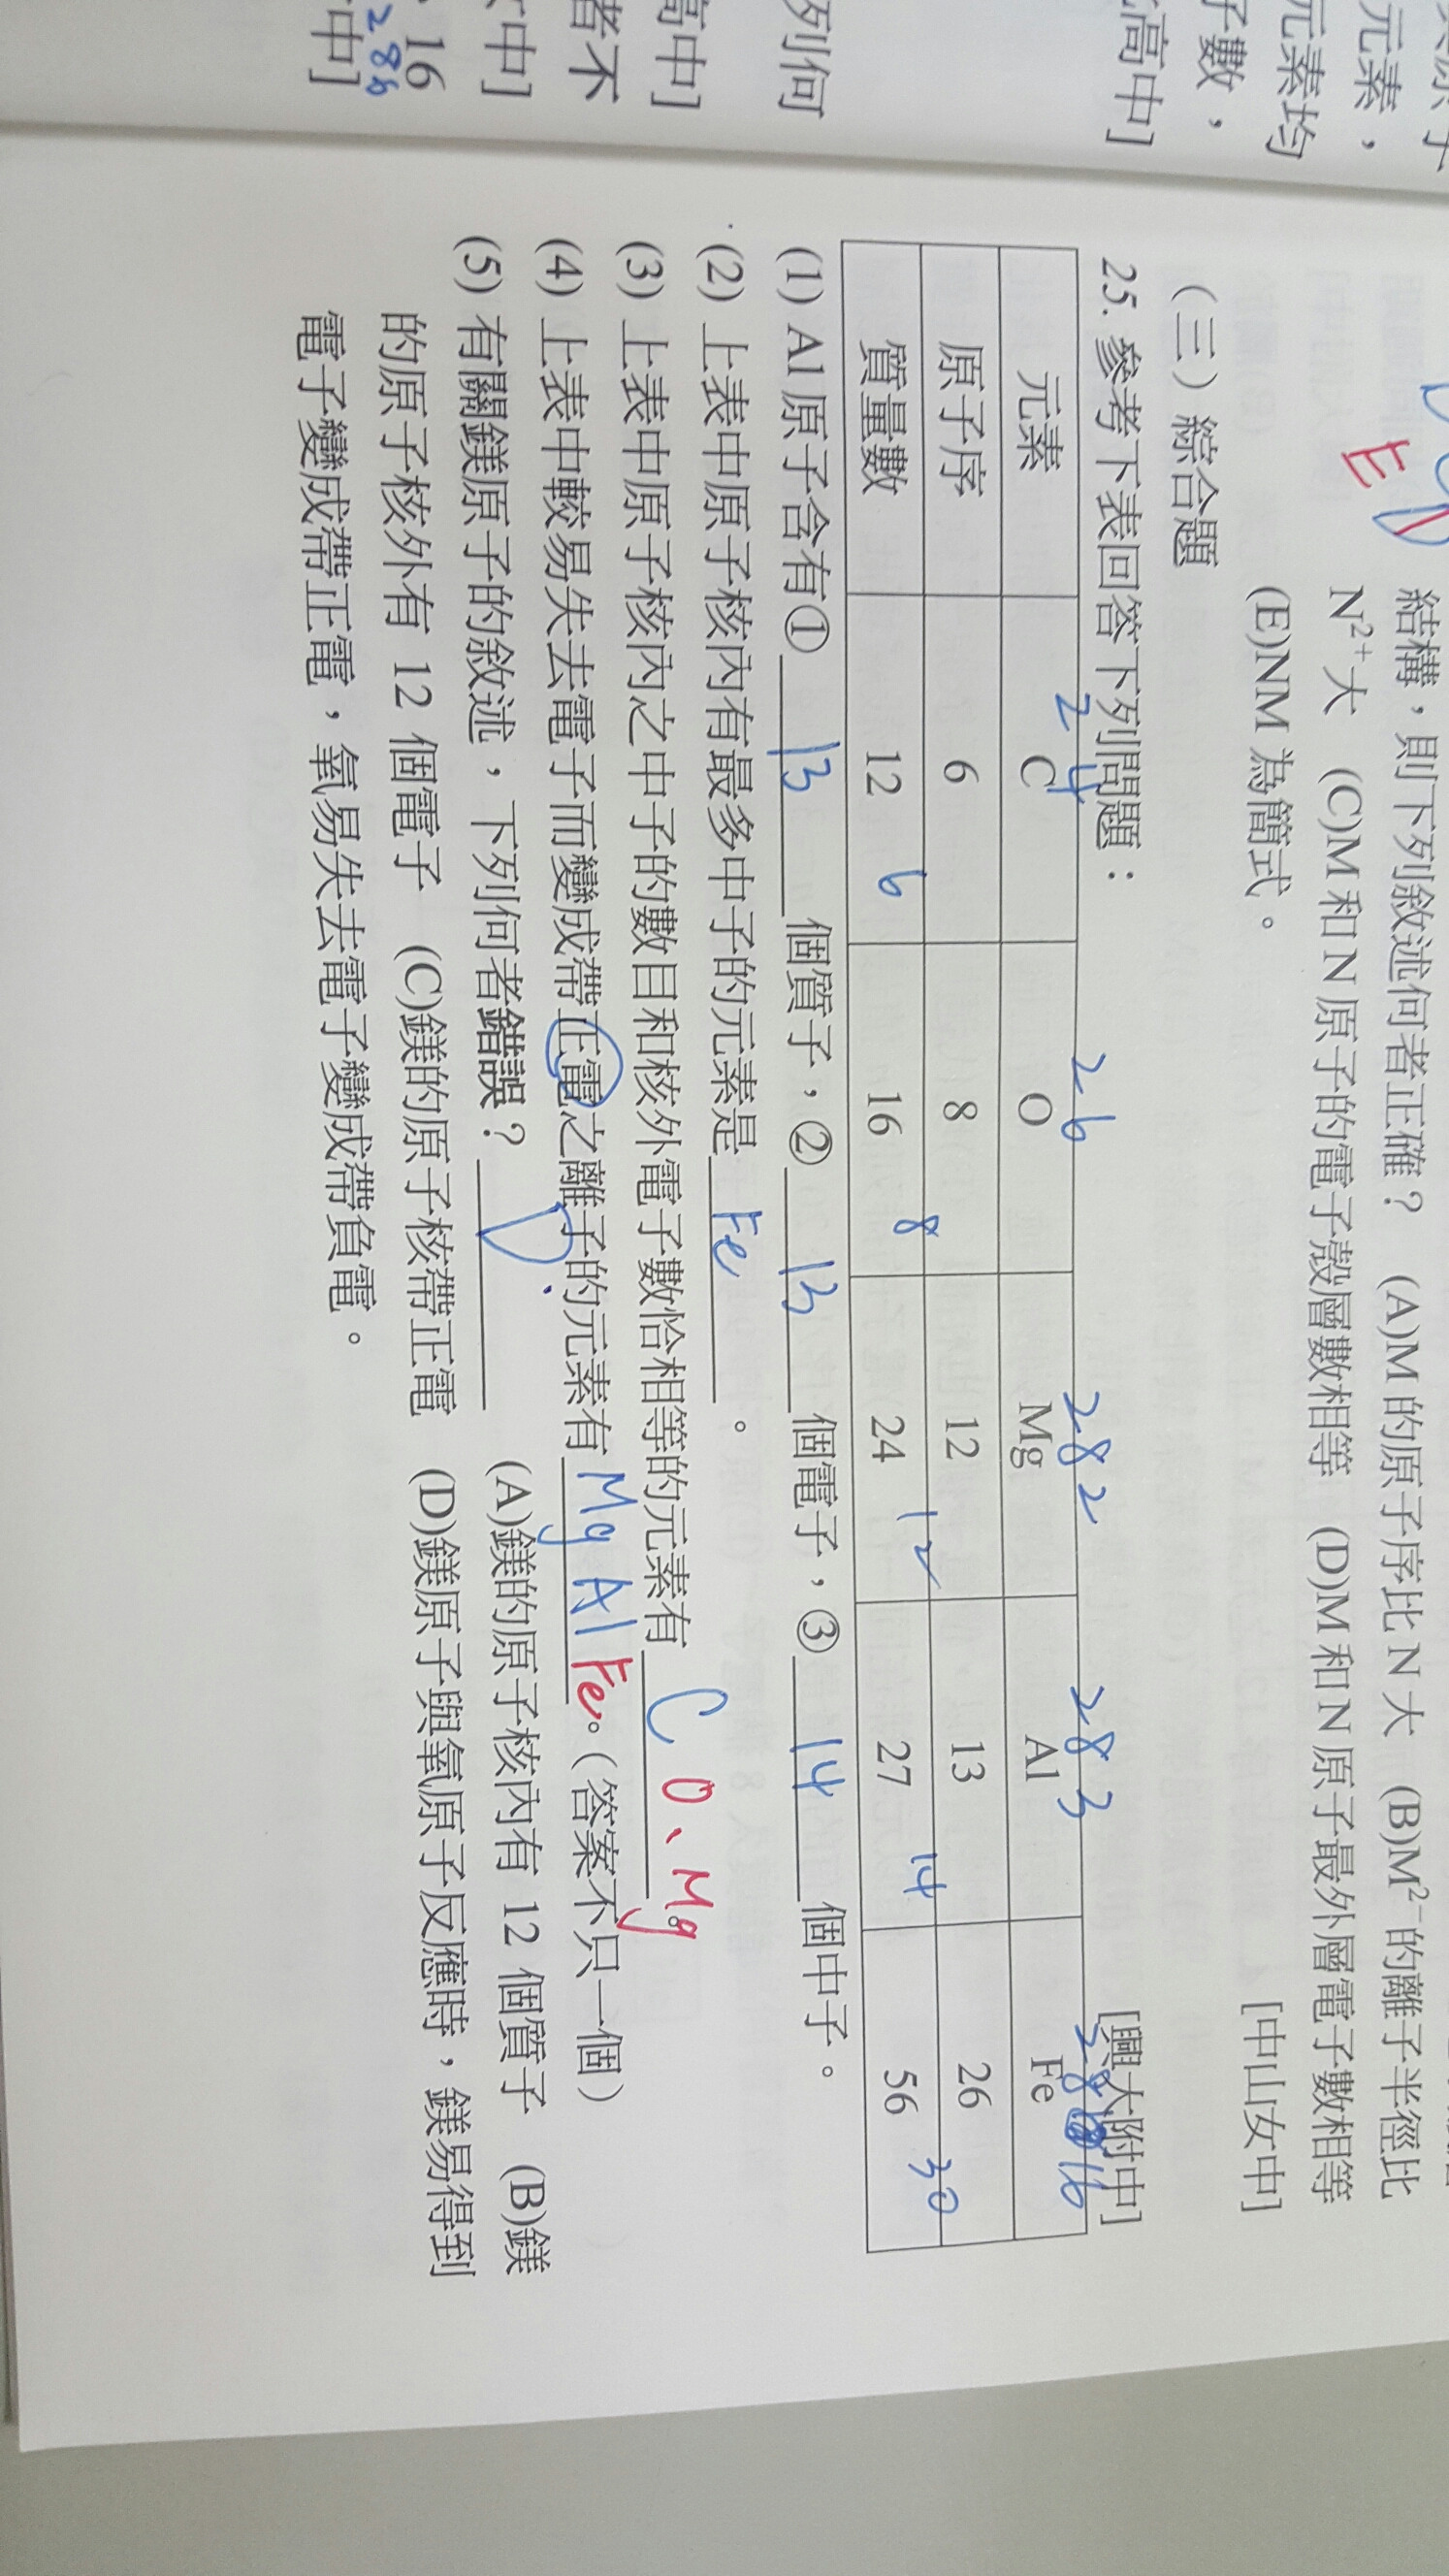 列何
高中]
者不
中]
16
2 8 6
中]
元素，
元素均
子數，
高中]
E
結構，則下列敘述何者正確？ (A)M 的原子序比 N 大 (B)M²⁻的離子半徑比
N²⁺大 (C)M 和 N 原子的電子殼層數相等 (D)M 和 N 原子最外層電子數相等
(E)NM 為簡式。 [中山女中]
（三）綜合題
25. 參考下表回答下列問題： [興大附中]
2 4 2 6 2 8 2 2 8 3 2 8 16
元素 C O Mg Al Fe
原子序 6 8 12 13 26
質量數 12 16 24 27 56
6 8 12 14 30
(1) Al 原子含有① 13 個質子，② 13 個電子，③ 14 個中子。
(2) 上表中原子核內有最多中子的元素是 Fe 。
(3) 上表中原子核內之中子的數目和核外電子數恰相等的元素有 C O、Mg 。
(4) 上表中較易失去電子而變成帶正電之離子的元素有 Mg Al Fe 。（答案不只一個）
(5) 有關鎂原子的敘述，下列何者錯誤？ D (A)鎂的原子核內有 12 個質子 (B)鎂
的原子核外有 12 個電子 (C)鎂的原子核帶正電 (D)鎂原子與氧原子反應時，鎂易得到
電子變成帶正電，氧易失去電子變成帶負電。